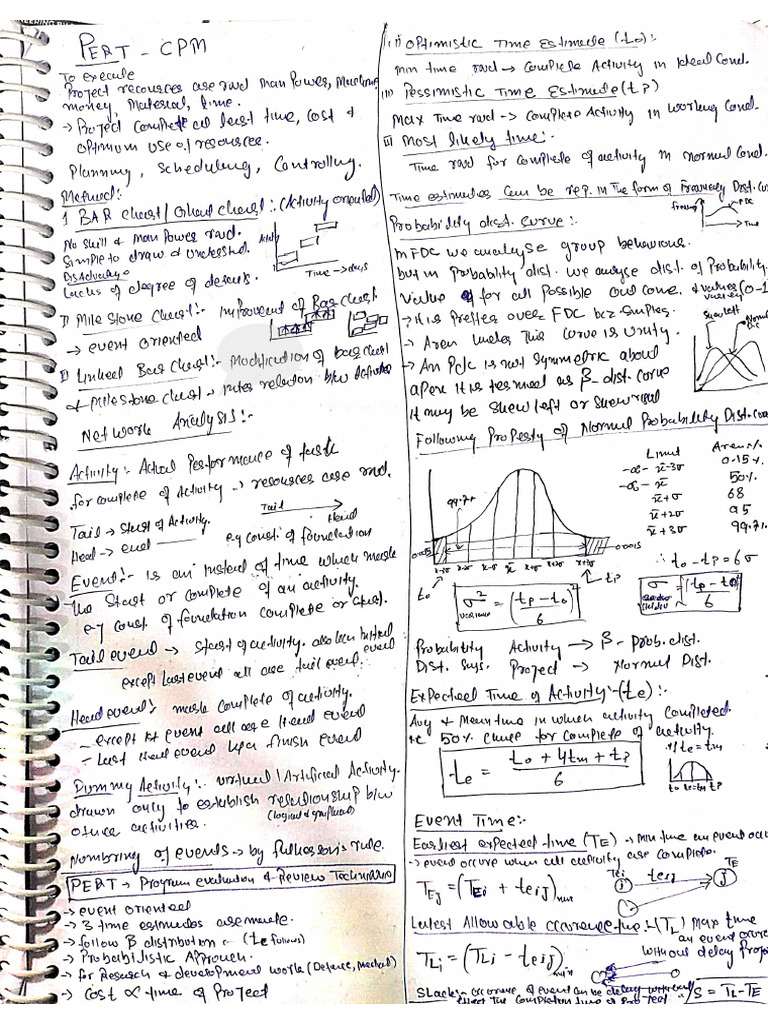 PERT - CPM
To execute
Project recources are rwd man Power, Machine,
money, Material, time.
→ Project complete at least time, cost &
optimum use of resources.
Planning, Scheduling, Controlling.
Method:
1 BAR Chart/Ghant Chart:- (Activity oriented)
No Skill & Man Power rwd.
Simple to draw & understand.
Disadvantage
Lacks of degree of details.
Activity
Time → days
II) Mile Stone Chart:- Improvement of Bar Chart.
→ event oriented
II) Linked Bar Chart:- Modification of bar chart
& Milestone chart → inter relation b/w activities
Network Analysis:-
Activity:- Actual Performance of task
for complete of activity → resources are rwd.
Tail → Start of Activity.
Tail
Head
Head → end
eg const. of foundation
Event:- is an instand of time which mark
the Start or complete of an activity.
e.g const. of foundation complete or start.
Tail event → start of activity. also len initial event
except last event all are tail event.
Head event:- mark complete of activity.
- except 1st event all are Head event
- Last Head event finish event
Dummy Activity:- virtual/Artificial Activity.
drawn only to establish relationship b/w
other activities. (logical & graphical)
Nombring of events → by fulkerson's rule.
PERT → Program evaluation & Review Technique
→ event oriented
→ 3 time estimates are made.
→ follow β distribution - (te follows)
→ Probabilistic Approach.
→ for Reserch & development work (Defence, Medical)
→ cost ∝ time of Project
(i) Optimistic Time Estimate (to):-
min time rwd → complete Activity in Ideal Cond.
(ii) Pessimistic Time Estimate (tp)
Max Time rwd → complete Activity in working cond.
iii Most likely time:-
Time rwd for complete of activity in normal cond.
Time estimates can be rep. in the form of Frequency Dist.
Probability dist. curve:-
Time
in FDC we analyse group behaviour.
but in Probability dist. we analyse dist. of Probability.
Value of for all possible out come. & values vary (0-1)
→ it is preffer over FDC bcz simples.
→ Area under this curve is unity.
→ An Pdc is not symmetric about
apex it is termed as β-dist. curve
it may be skew left or skew right
skew left
Following Property of Normal Probability Dist. curve
Limit Area %
-∝ - x̄-3σ 0.15%
-∝ - x̄ 50%
x̄+σ 68
x̄+2σ 95
x̄+3σ 99.7%
99.7%
0.0015
x̄-3σ x̄-2σ x-σ x̄ x+σ x+2σ x+3σ
to
tp
∴ to - tp = 6σ
σ² variance = (tp - to / 6)²
σ standard = (tp - to) / 6
Probability Activity → β - Prob. dist.
Dist. Sys. Project → Normal Dist.
Expected Time of Activity:- (te):-
Avg & Mean time in which activity completed.
i.e 50% chance for complete of activity.
te = to + 4tm + tp / 6
if te = tm
to te=tm tp
Event Time:-
Earliest expected time (TE) → min time an event occur
→ event occure when all activity are complete.
TEj = (TEi + teij)max
TEi teij TE
i j
Latest Allowable occurence time:- (TL) Max time
an event occure
without delay
TLi = (TLj - teij)min
Slack:- occurence of event can be delay without
effect the completion time of project S = TL - TE